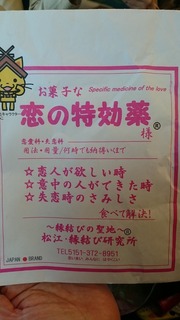 お菓子な
Specific medicine of the love
恋の特効薬®
様
恋愛科・失恋科
用法・用量/何時でも納得いくまで
☆恋人が欲しい時
☆意中の人ができた時
☆失恋時のさみしさ
食べて解決!
〜縁結びの聖地〜
松江・縁結び研究所
TEL5151-372-8951
JAPAN BRAND